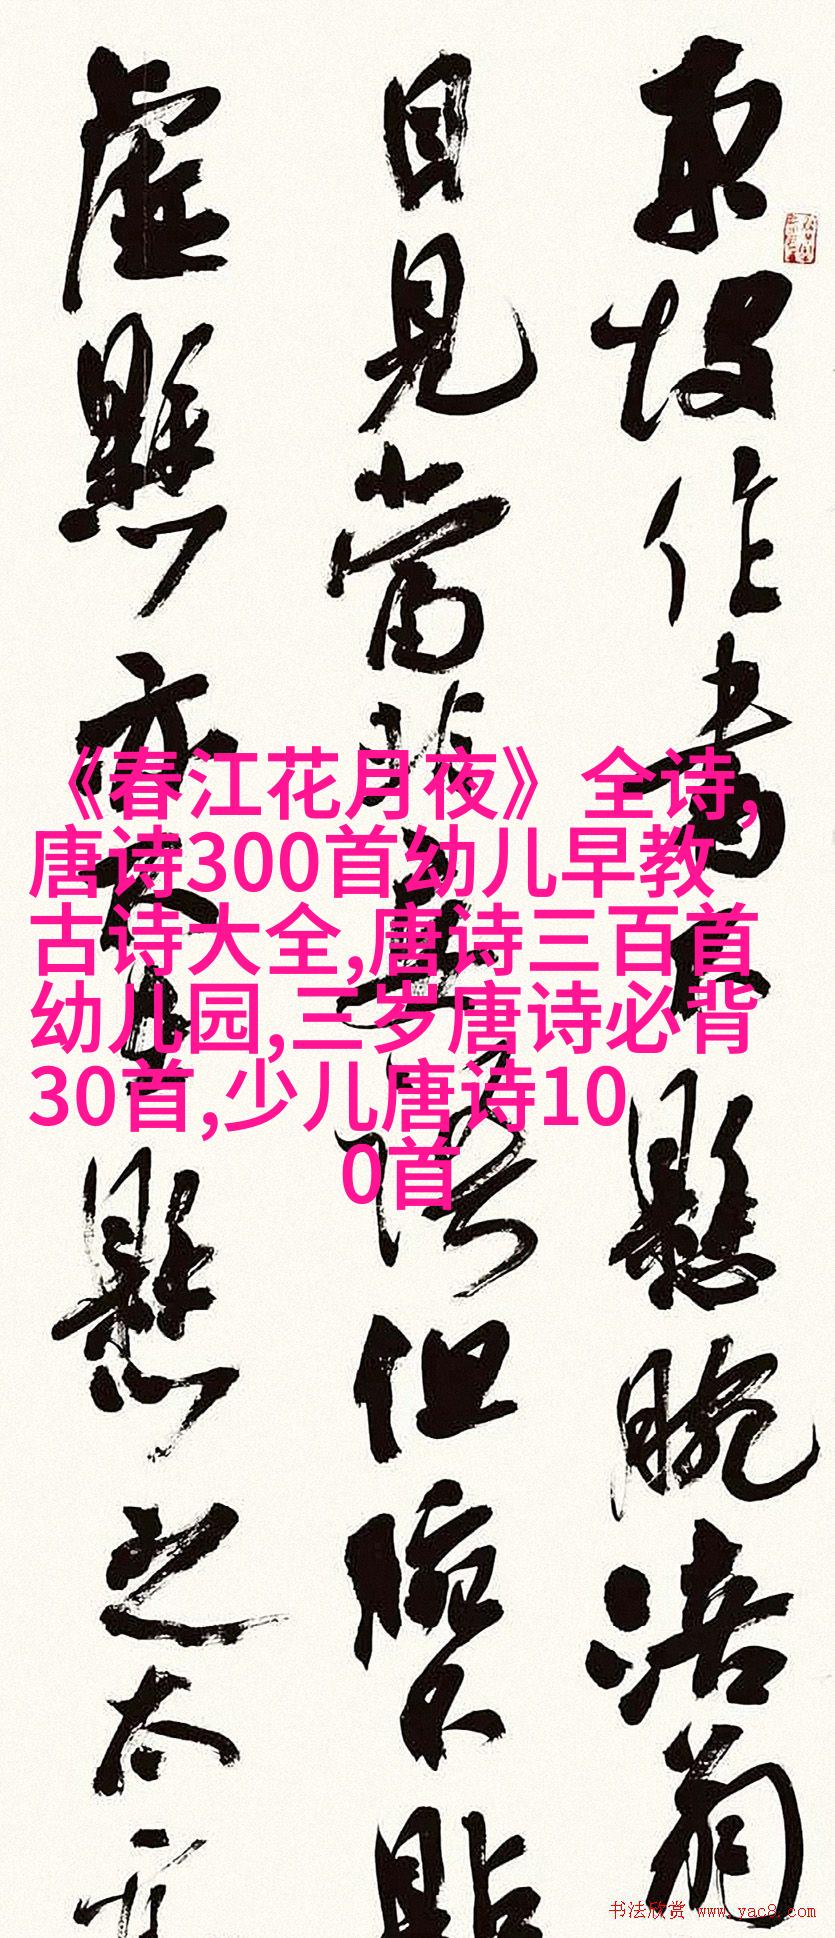 東坡作書不懸腕涪翁
目見當非無但腕不貼
虛懸亦懸之太
《春江花月夜》全诗,
唐诗300首幼儿早教
古诗大全,唐诗三百首
幼儿园,三岁唐诗必背
30首,少儿唐诗10
0首
书法欣赏 www.yac8.com